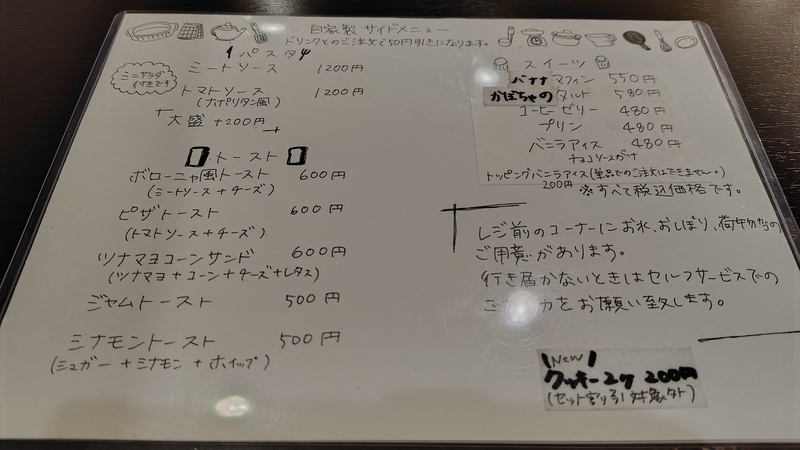 自家製 サイドメニュー
ドリンクとのご注文で50円引きになります。
パスタ
ミニサラダ
付きです
ミートソース 1200円
トマトソース 1200円
(ナポリタン風)
大盛 +200円
トースト
ボローニャ風トースト 600円
(ミートソース+チーズ)
ピザトースト 600円
(トマトソース+チーズ)
ツナマヨコーンサンド 600円
(ツナマヨ+コーン+チーズ+レタス)
ジャムトースト 500円
シナモントースト 500円
(シュガー+シナモン+ホイップ)
スイーツ
バナナマフィン 550円
かぼちゃのタルト 580円
コーヒーゼリー 480円
プリン 480円
バニラアイス 480円
チョコソースがけ
トッピングバニラアイス(単品でのご注文はできません。)
200円
※すべて税込価格です。
レジ前のコーナーにお水、おしぼり、荷物カゴの
ご用意があります。
行き届かないときはセルフサービスでの
ご 力をお願い致します。
New
クッキー2ケ 200円
(セット割り引対象外)